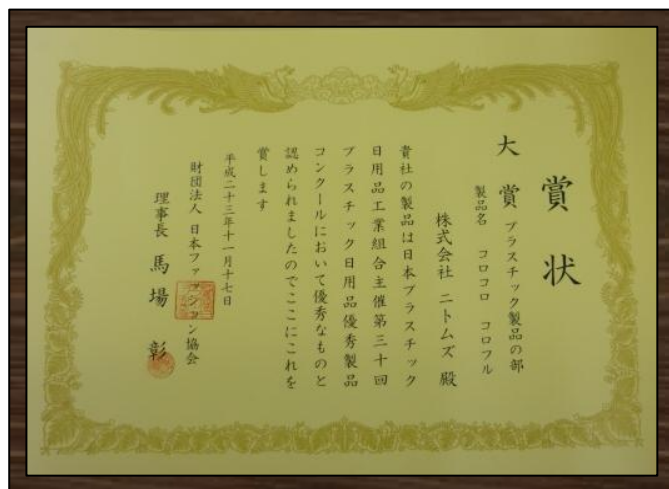 賞状
大賞 プラスチック製品の部
製品名 コロコロ コロフル
株式会社 ニトムズ 殿
貴社の製品は日本プラスチック
日用品工業組合主催第三十回
プラスチック日用品優秀製品
コンクールにおいて優秀なものと
認められましたのでここにこれを
賞します
平成二十三年十一月十七日
財団法人 日本ファッション協会
理事長 馬場 彰